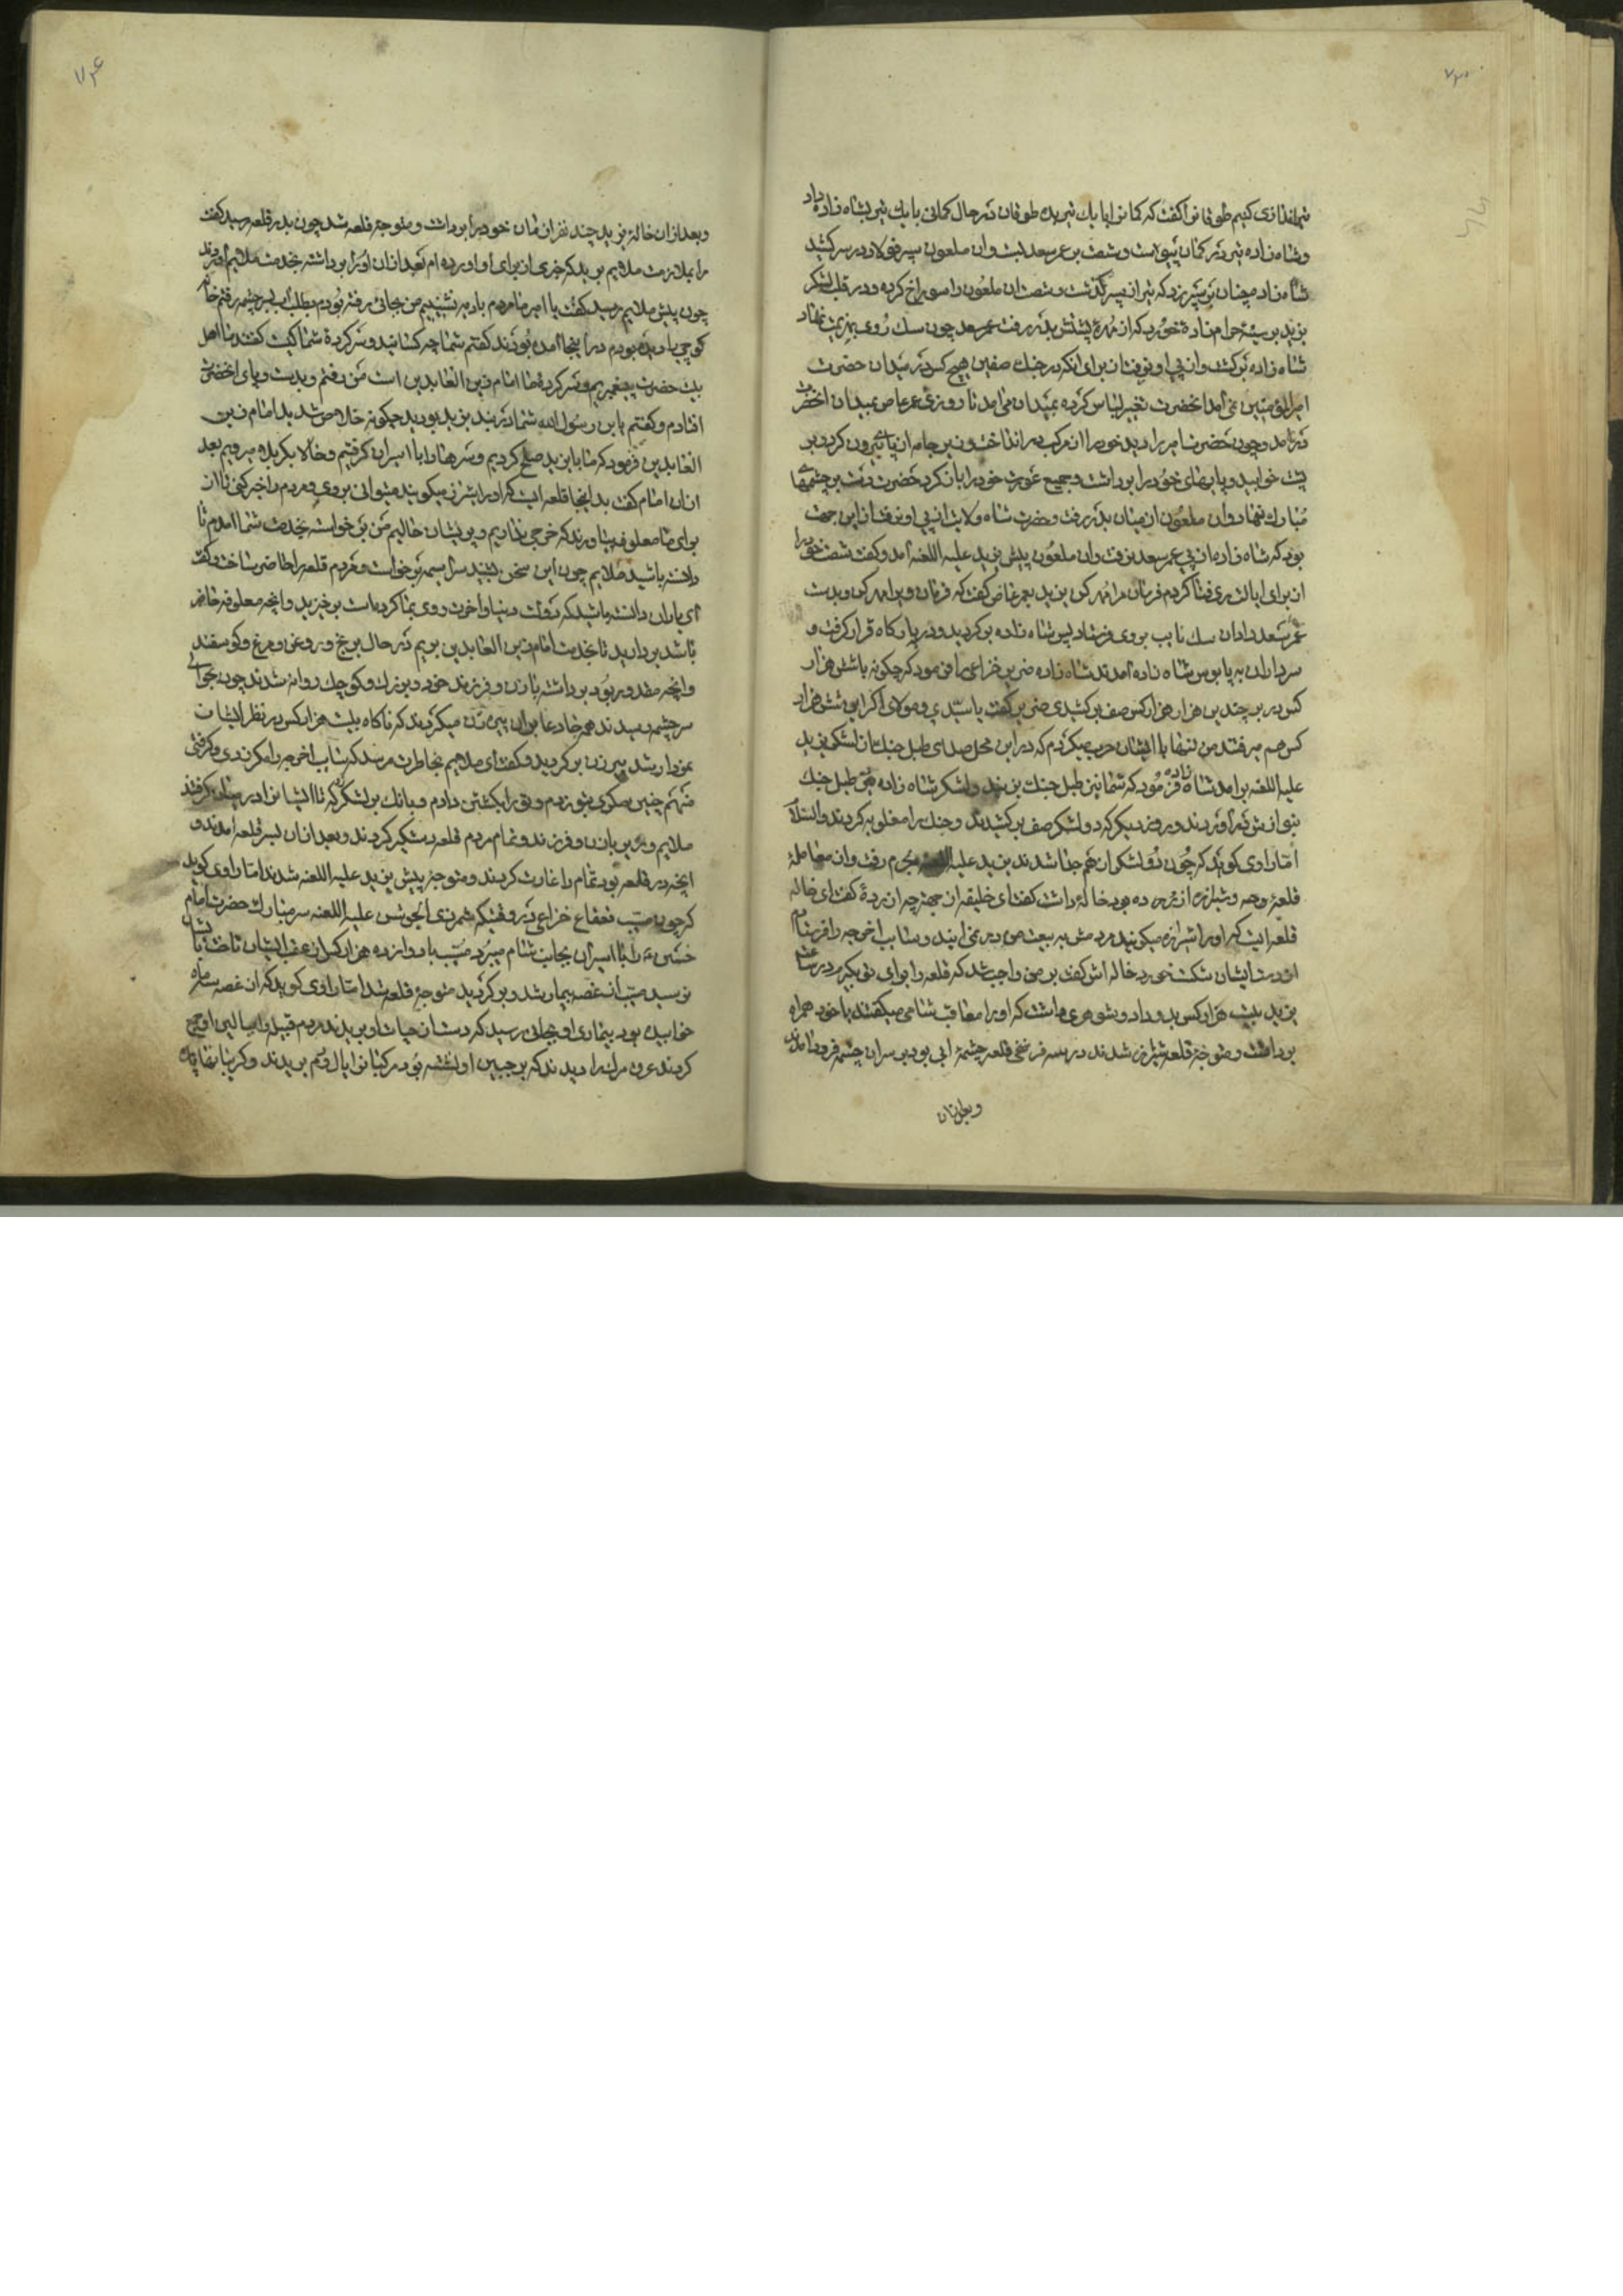 تیراندازی کنیم طوغان را گفت که کمان را با یک تیر بده طوغان در حال کمانی با یک تیر بشاه زاده داد
و شاه زاده تیر در کمان پیوست و شصت بر عمر سعد بست و آن ملعون سپر فولاد در سر کشید
شاه زاده چنان بر سپر زد که تیر از سپر گذشت و شصت آن ملعون را سوراخ کرده و در قلب لشکر
یزید بر سینهٔ حرام زادهٔ خورد که از مهرهٔ پشتش بدر رفت عمر سعد چون سک روی بهزیمت نهاد
شاه زاده برکشت و از پی او نرفت از برای آنکه در جنك صفین هیچ کس در میدان حضرت
امیرالمومنین نمی آمد آنحضرت تغییر لباس کرده بمیدان می آمد تا روزی عمر عاص بمیدان آنحضرت
در آمد و چون حضرت امیر را دید خود را از مرکب در انداخت و زیر جامه از پای بیرون کرد و بر
پشت خوابید و پایهای خود را برداشت و جمیع عورت خود را باز کرد حضرت دست بر چشمهای
مبارك نهاد و آن ملعون از میان بدر رفت و حضرت شاه ولایت از پی او نرفت از این جهت
بود که شاه زاده از پی عمر سعد نرفت و آن ملعون پیش یزید علیه اللعنه آمد و گفت شصت خود را
از برای ایالت ری فنا کردم فرمان مرا مهر کن یزید بعمر عاص گفت که فرمان ویرا مهر کن و بدست
عمر سعد داد آن سك نایب بروی فرستاد پس شاه زاده برکردید و در بارکاه قرار کرفت و
سرداران به پابوس شاه زاده آمدند شاه زاده ضریر خزاعی را فرمود که چکونه با شش هزار
کس در برابر چندین هزار هزار کس صف بر کشیدی ضریر گفت یا سیدی و مولای اگر این شش هزار
کس هم میرفتند من تنها با ایشان حرب میکردم که در این محل صدای طبل جنك از لشکر یزید
علیه اللعنه برآمد شاه زاده فرمود که شما نیز طبل جنك بزنید و لشکر شاه زاده هم طبل جنك
بنوازش در آوردند و روز دیکر که دو لشکر صف بر کشیدند و جنك را مغلوبه کردند والسلام
اما راوی کوید که چون دو لشکر از هم جدا شدند یزید علیه اللعنه بحرم رفت و آن معاملهٔ
قلعه و شیراز آزرده بود خالهٔ داشت گفت ای خلیفه از جهت چه آزردهٔ کفت ای خاله
قلعه ایست که او را شیراز میکویند مردمش به بیعت من در نمی آیند و مسیب آخوجه را فرستادم
از دست ایشان شکست خورد خاله اش کفت بر من واجب شد که قلعه را برای تو بکیرم در ساعت
یزید بیست هزار کس بدو داد و شوهری داشت که او را معاقب شامی میکفتند با خود همراه
برداشت و متوجهٔ قلعه شیراز شدند در سه فرسخی قلعه چشمهٔ آبی بود بر سر آن چشمه فرود آمدند
و بعد از آن
و بعد از آن خالهٔ یزید چند نفر از زنان خود را برداشت و متوجهٔ قلعه شد چون بدر قلعه رسید کفت
مرا بملازمت ملایم برید که خبری از برای او آورده ام بعد از آن او را برداشته بخدمت ملایم آوردند
چون پیش ملایم رسید کفت یا امیر ما مردم بادیه نشینیم من جائی رفته بودم بطلب آب بسر چشمه رفتم
کوچی با دیدم در اینجا آمده بودند کفتم شما چه کسانید و سر کردهٔ شما کیست کفتند ما اهل
بیت حضرت پیغمبریم و سر کردهٔ ما امام زین العابدین است من رفتم و بدست و پای آنحضرت
افتادم و کفتم یابن رسول الله شما در بند یزید بودید چکونه خلاص شدید امام زین
العابدین فرمود که ما با یزید صلح کردیم و سرها را با اسیران کرفتیم و حالا بکربلا میرویم بعد
از آن امام کفت بدینجا قلعه ایست که او را شیراز میکویند میتوانی بروی و مردم را خبر کنی تا از
برای ما معلوفه بیاورند که خرجی نداریم و پریشان حالیم من برخواسته بخدمت شما آمدم تا
دانسته باشید ملایم چون این سخن شنید سراسیمه برخواست و مردم قلعه را حاضر ساخت و کفت
ای یاران دانسته باشید که دولت دنیا و آخرت روی بما کرده است برخیزید و آنچه معلوفه حاضر
باشد بردارید تا بخدمت امام زین العابدین بریم در حال برنج و روغن و مرغ و کوسفند
و آنچه مقدور بود برداشته با زن و فرزند خود و بزرك و کوچك روانه شدند چون بحوالی
سر چشمه رسیدند همه جا دعا بر آن پیر زن میکردند که ناکاه بیست هزار کس در نظر ایشان
نمودار شد پیر زن برکردید و کفت ای ملایم بخاطرت میرسد که مسیب آخوجه را مکر زدی و کرفتی
منهم چنین مکری بتو زدم و تو را بکشتن دادم و بانك بر لشکر زد که تا ایشانرا در میان کرفتند
ملایم و پدر با زن و فرزند و تمام مردم قلعه دستکیر کردند و بعد از آن بسر قلعه آمدند و
آنچه در قلعه بود تمام را غارت کردند و متوجهٔ پیش یزید علیه اللعنه شدند اما راوی کوید
که چون مسیب قعقاع خزاعی در وقتیکه شمر ذی الجوشن علیه اللعنه سر مبارك حضرت امام
حسین ع را با اسیران بجانب شام میبرد مسیب با دوازده هزار کس از عقب ایشان تاخت بایشان
نرسید مسیب از غصه بیمار شد و برکردید متوجهٔ قلعه شد اما راوی کوید که از غصه سه ماه
خوابیده بود بیماری او بجائی رسید که دست از حیات او بریدند مردم قبیله بر بالین او جمع
کردند عرق مرك را دیدند که بر جبین او نشسته بود مرکبانرا یال و دم بریدند و کریبانها چاك
۷۳۵
۷۳۶